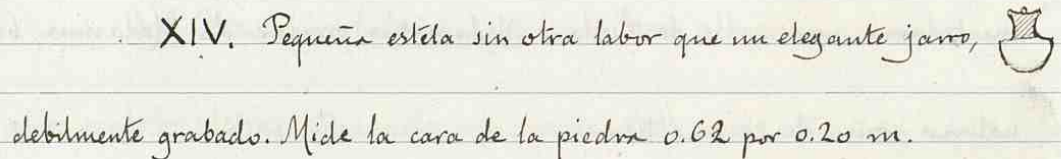 XIV. Pequeña estela sin otra labor que un elegante jarro,
debilmente grabado. Mide la cara de la piedra 0.62 por 0.20 m.